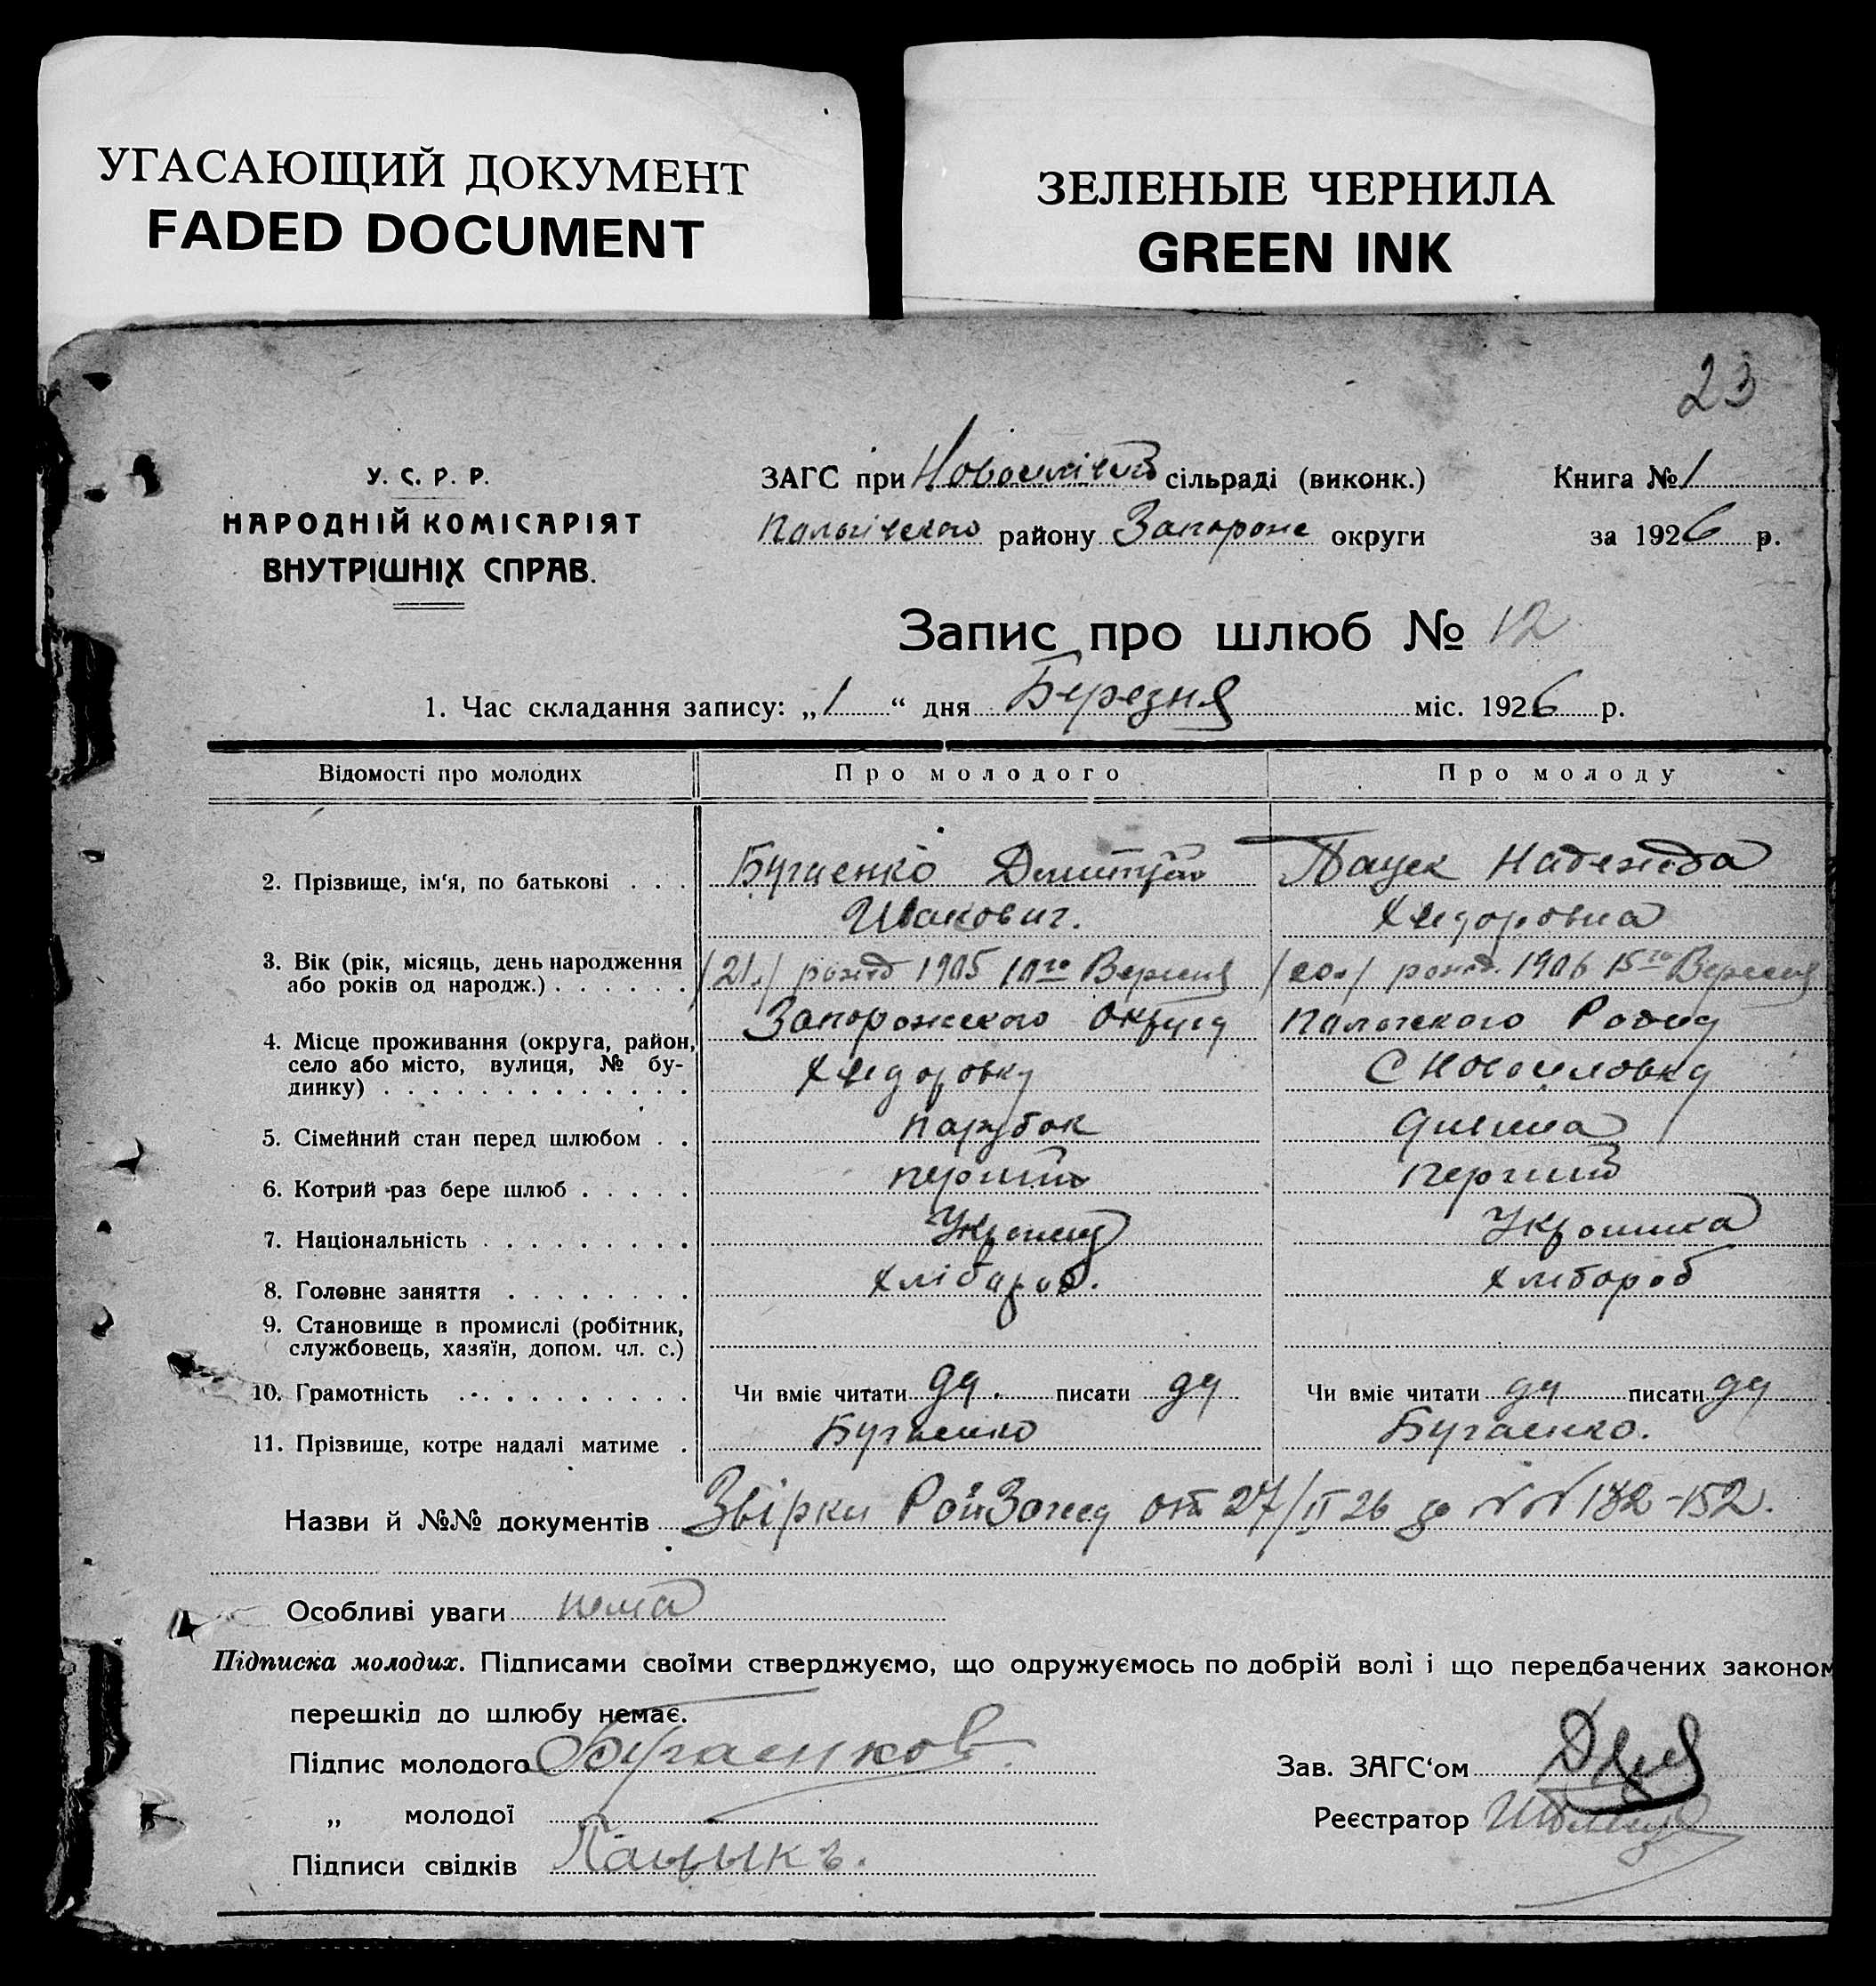 УГАСАЮЩИЙ ДОКУМЕНТ
FADED DOCUMENT
ЗЕЛЕНЫЕ ЧЕРНИЛА
GREEN INK
23
У. С. Р. Р.
НАРОДНІЙ КОМІСАРІЯТ
ВНУТРІШНІХ СПРАВ.
ЗАГС при сільраді (виконк.)
району Запорож округи
Книга № 1
за 1926 р.
Запис про шлюб № 12
1. Час складання запису: „1“ дня Березня міс. 1926 р.
Відомості про молодих Про молодого Про молоду
2. Прізвище, ім‘я, по батькові . . . Бугаенко Дмитрий Пацек Надежда
Исакович. Хведоровна
3. Вік (рік, місяць, день народження
або років од народж.) . . . . . . /21./ рожд 1905 10го Вересня /20./ рожд. 1906 15го Вересня
Запорожского Округу
4. Місце проживання (округа, район,
село або місто, вулиця, № бу-
динку) . . . . . . . . . . . . . Хведоровку
5. Сімейний стан перед шлюбом . . парубок дивчина
6. Котрий раз бере шлюб . . . . . перший перший
7. Національність . . . . . . . . . Украинка
8. Головне заняття . . . . . . . . хлібороб. хлибороб
9. Становище в промислі (робітник,
службовець, хазяїн, допом. чл. с.)
10. Грамотність . . . . . . . . . . Чи вміє читати да. писати да Чи вміє читати да писати да
11. Прізвище, котре надалі матиме . Бугаенко Бугаенко.
Назви й №№ документів Звірки от 27/II 26 за №№ 182-152.
Особливі уваги нема
Підписка молодих. Підписами своїми стверджуємо, що одружуємось по добрій волі і що передбачених законом
перешкід до шлюбу немає.
Підпис молодого Бугаенков
Зав. ЗАГС‘ом
„ молодої
Реєстратор
Підписи свідків Пацыкъ.